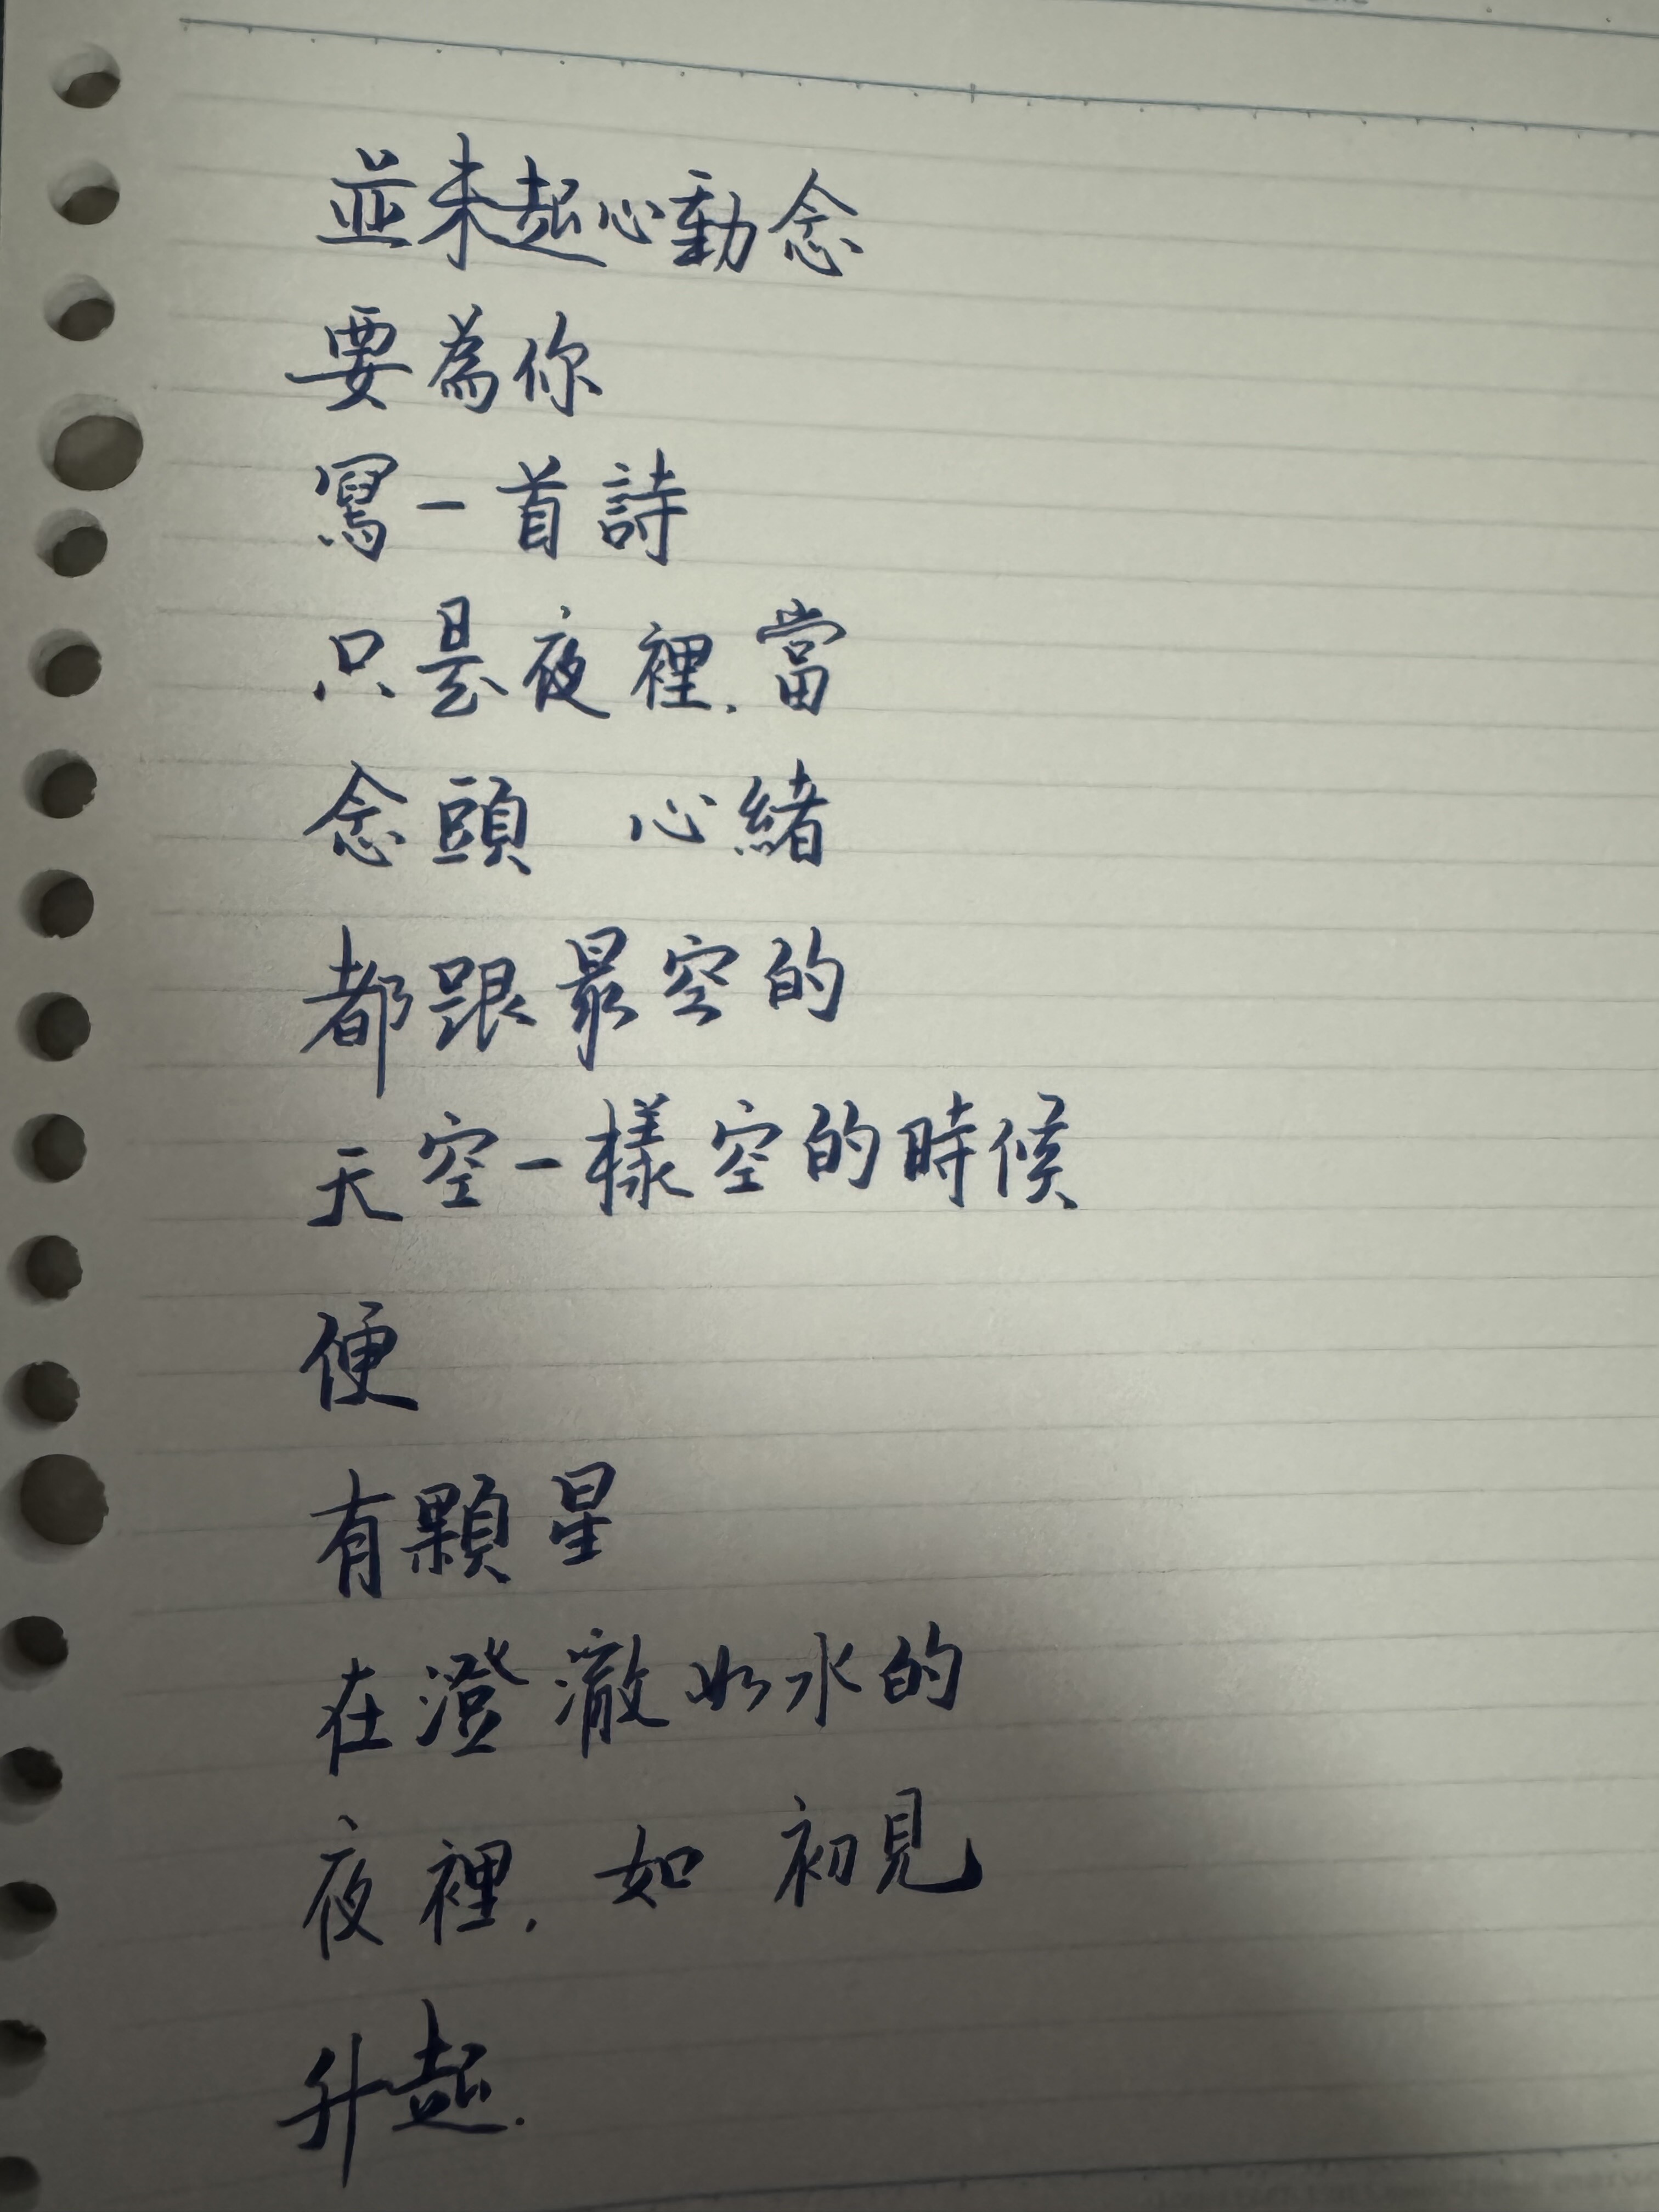 並未起心動念
要為你
寫一首詩
只是夜裡.當
念頭 心緒
都跟最空的
天空一樣空的時候
便
有顆星
在澄澈如水的
夜裡. 如 初見
升起.